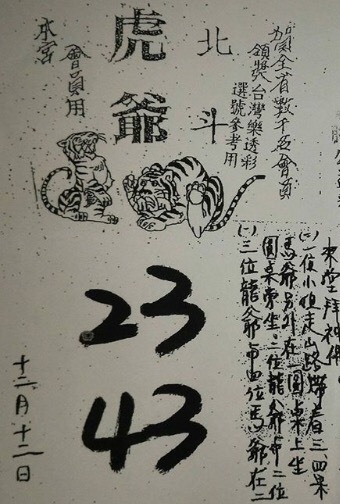 全省數千名會員
領獎台灣樂透彩
選號參考用
北斗
虎爺
會員用
本宮
23
43
(一)三位龍爺与四位馬爺在二
圓桌旁坐.二位龍爺与二位
馬爺另外在一圓桌上坐
(二)一位小姐走山路帶着三、四朵
堂拜神佛
十二月十二日